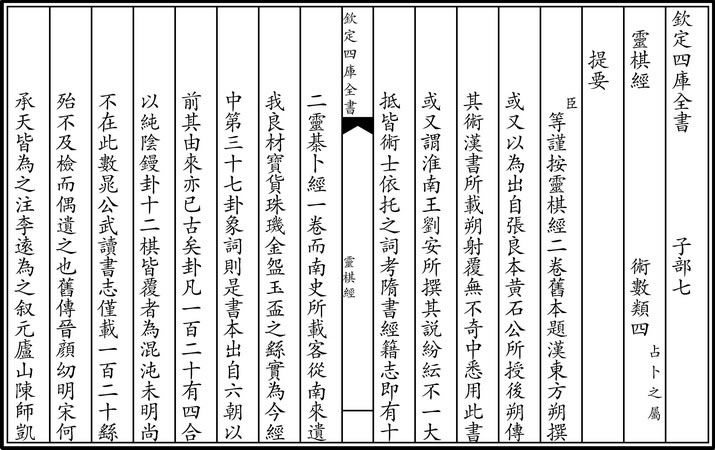 欽定四庫全書　　　　　子部七
靈棋經　　　　　　　　術數類四占卜之屬
提要
臣等謹按靈棋經二卷舊本題漢東方朔撰
或又以為出自張良本黃石公所授後朔傳
其術漢書所載朔射覆無不奇中悉用此書
或又謂淮南王劉安所撰其說紛紜不一大
抵皆術士依托之詞考隋書經籍志即有十
欽定四庫全書　　靈棋經
二靈棊卜經一卷而南史所載客從南來遺
我良材寶貨珠璣金盌玉盃之繇實為今經
中第三十七卦象詞則是書本出自六朝以
前其由來亦已古矣卦凡一百二十有四合
以純陰鏝卦十二棋皆覆者為混沌未明尚
不在此數晁公武讀書志僅載一百二十繇
殆不及檢而偶遺之也舊傳晉顔幼明宋何
承天皆為之注李遠為之叙元廬山陳師凱